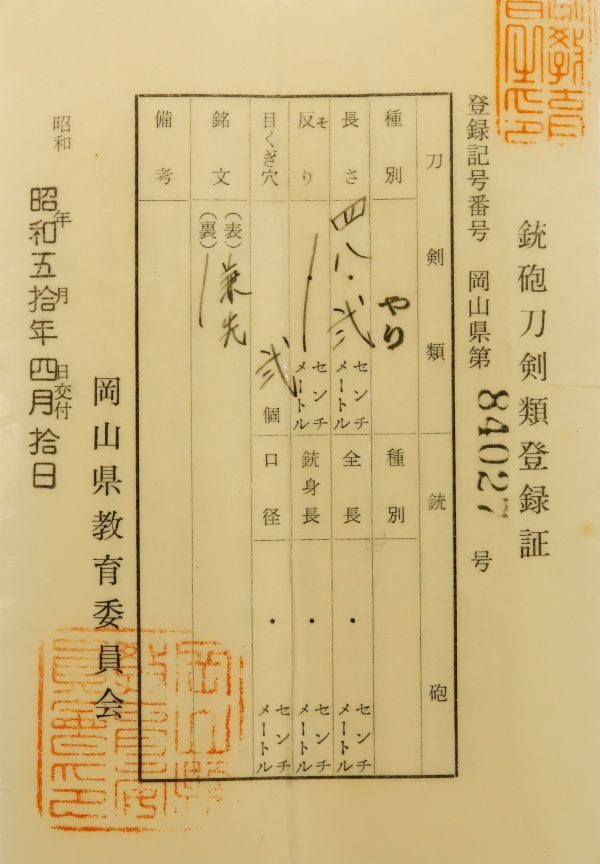 銃砲刀剣類登録証
登録記号番号 岡山県第 84027 号
刀剣類
種別 やり
長さ 四八.弐 センチメートル
反り そ ・ センチメートル
目くぎ穴 弐 個
銘文 (表) 兼先
(裏)
備考
銃砲
種別
全長 ・ センチメートル
銃身長 ・ センチメートル
口径 ・ センチメートル
岡山県教育委員会
昭和 年 月 日交付
昭和五拾年四月拾日